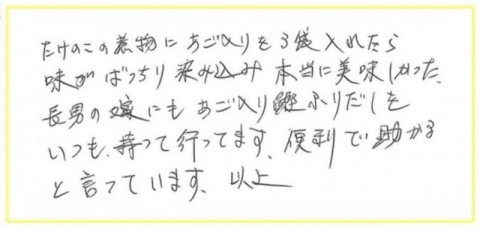 たけのこの煮物にあご入りを3袋入れたら
味がばっちり染み込み本当に美味しかった、
長男の嫁にもあご入り鰹ふりだしを
いつも、持って行ってます、便利で助かる
と言っています、以上